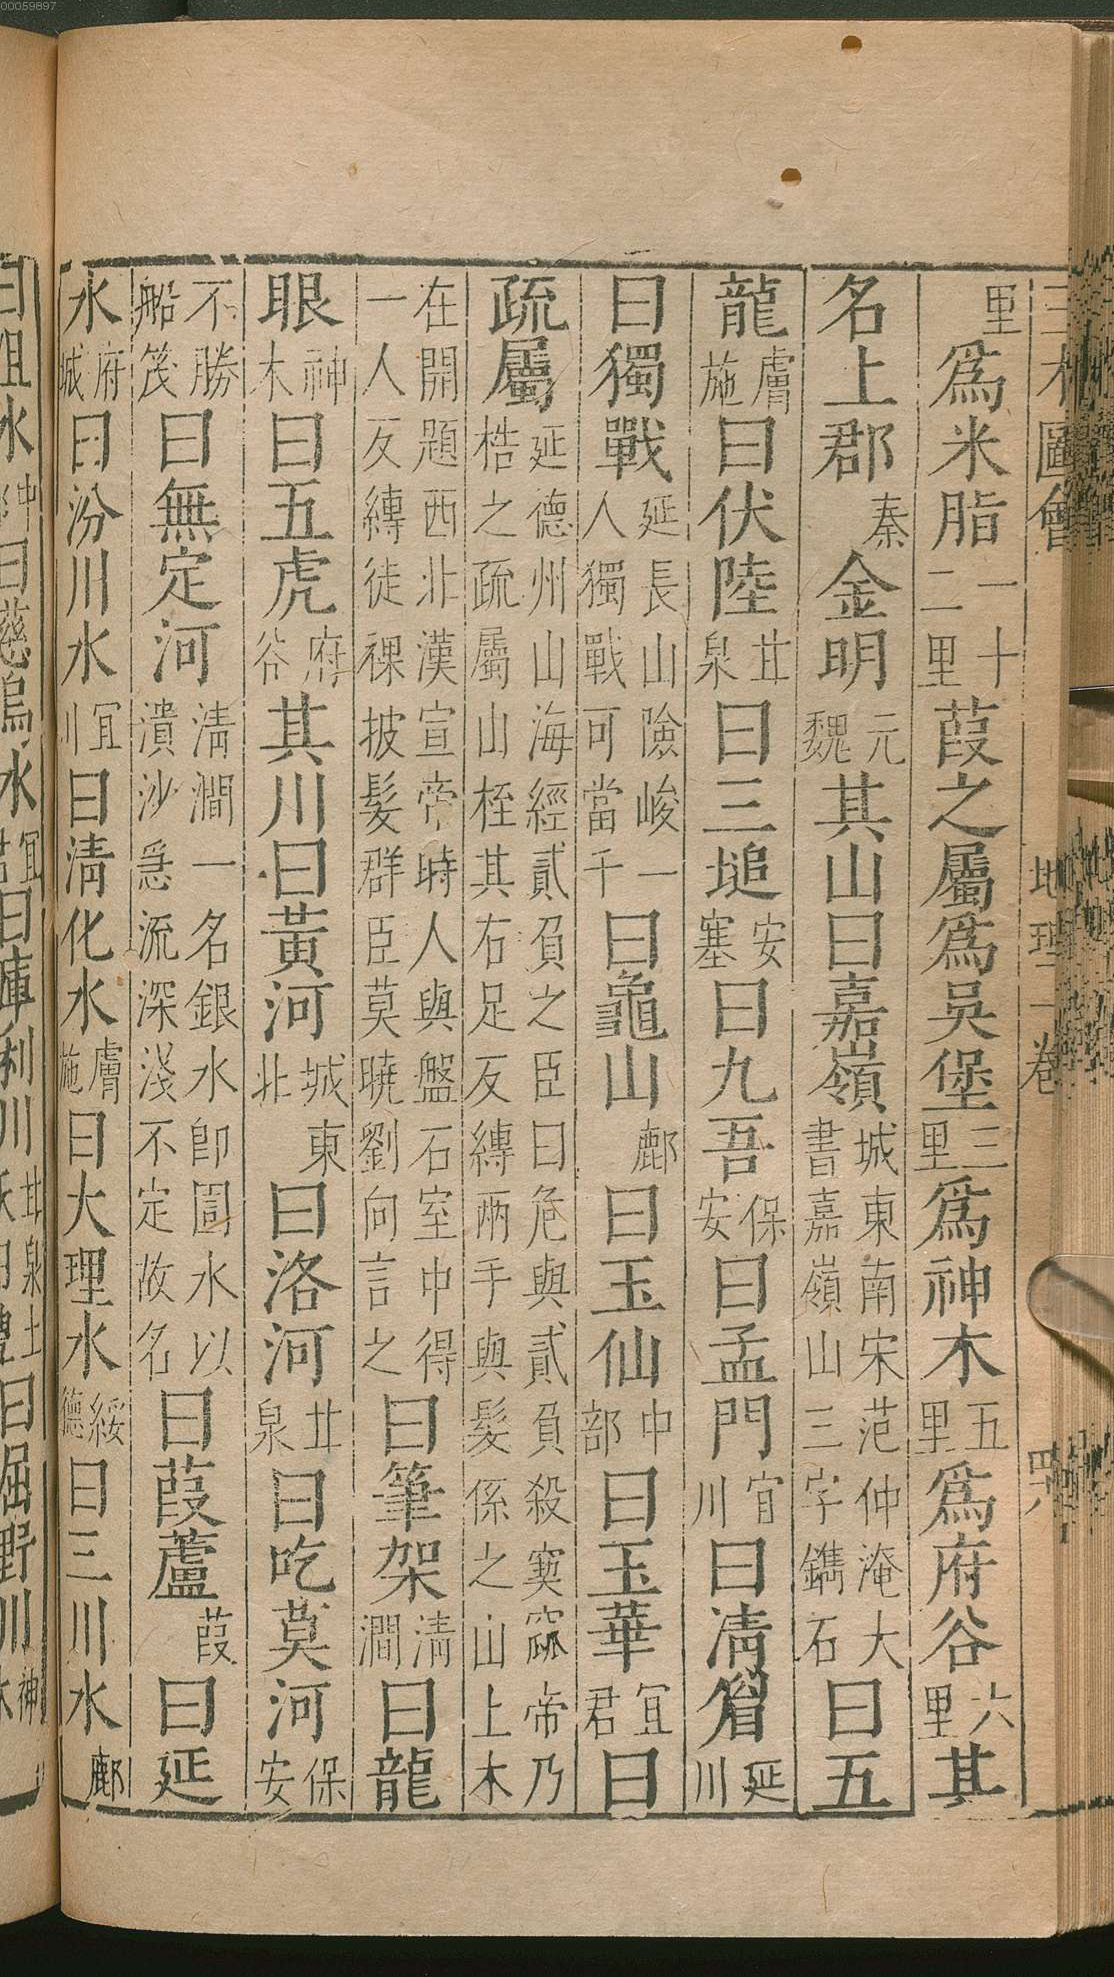 00059897
三才圖會 地理二卷 四八
里爲米脂一十二里葭之屬爲吳堡三里爲神木五里爲府谷六里其
名上郡秦金明元魏其山曰嘉嶺城東南宋范仲淹大書嘉嶺山三字鐫石曰五
龍膚施曰伏陸甘泉曰三塠安塞曰九吾保安曰孟門宜川曰清眉延川
曰獨戰延長山險峻一人獨戰可當千曰龜山鄜曰玉仙中部曰玉華宜君曰
疏屬延德州山海經貳負之臣曰危與貳負殺窫窳帝乃梏之疏屬山桎其右足反縛兩手與髮係之山上木
在開題西北漢宣帝時人與盤石室中得一人反縛徒裸披髮群臣莫曉劉向言之曰筆架清澗曰龍
眼神木曰五虎府谷其川曰黃河城東北曰洛河甘泉曰吃莫河保安
不勝船筏曰無定河清澗一名銀水即圁水以潰沙急流深淺不定故名曰葭蘆葭曰延
水府城曰汾川水宜川曰清化水膚施曰大理水綏德曰三川水鄜